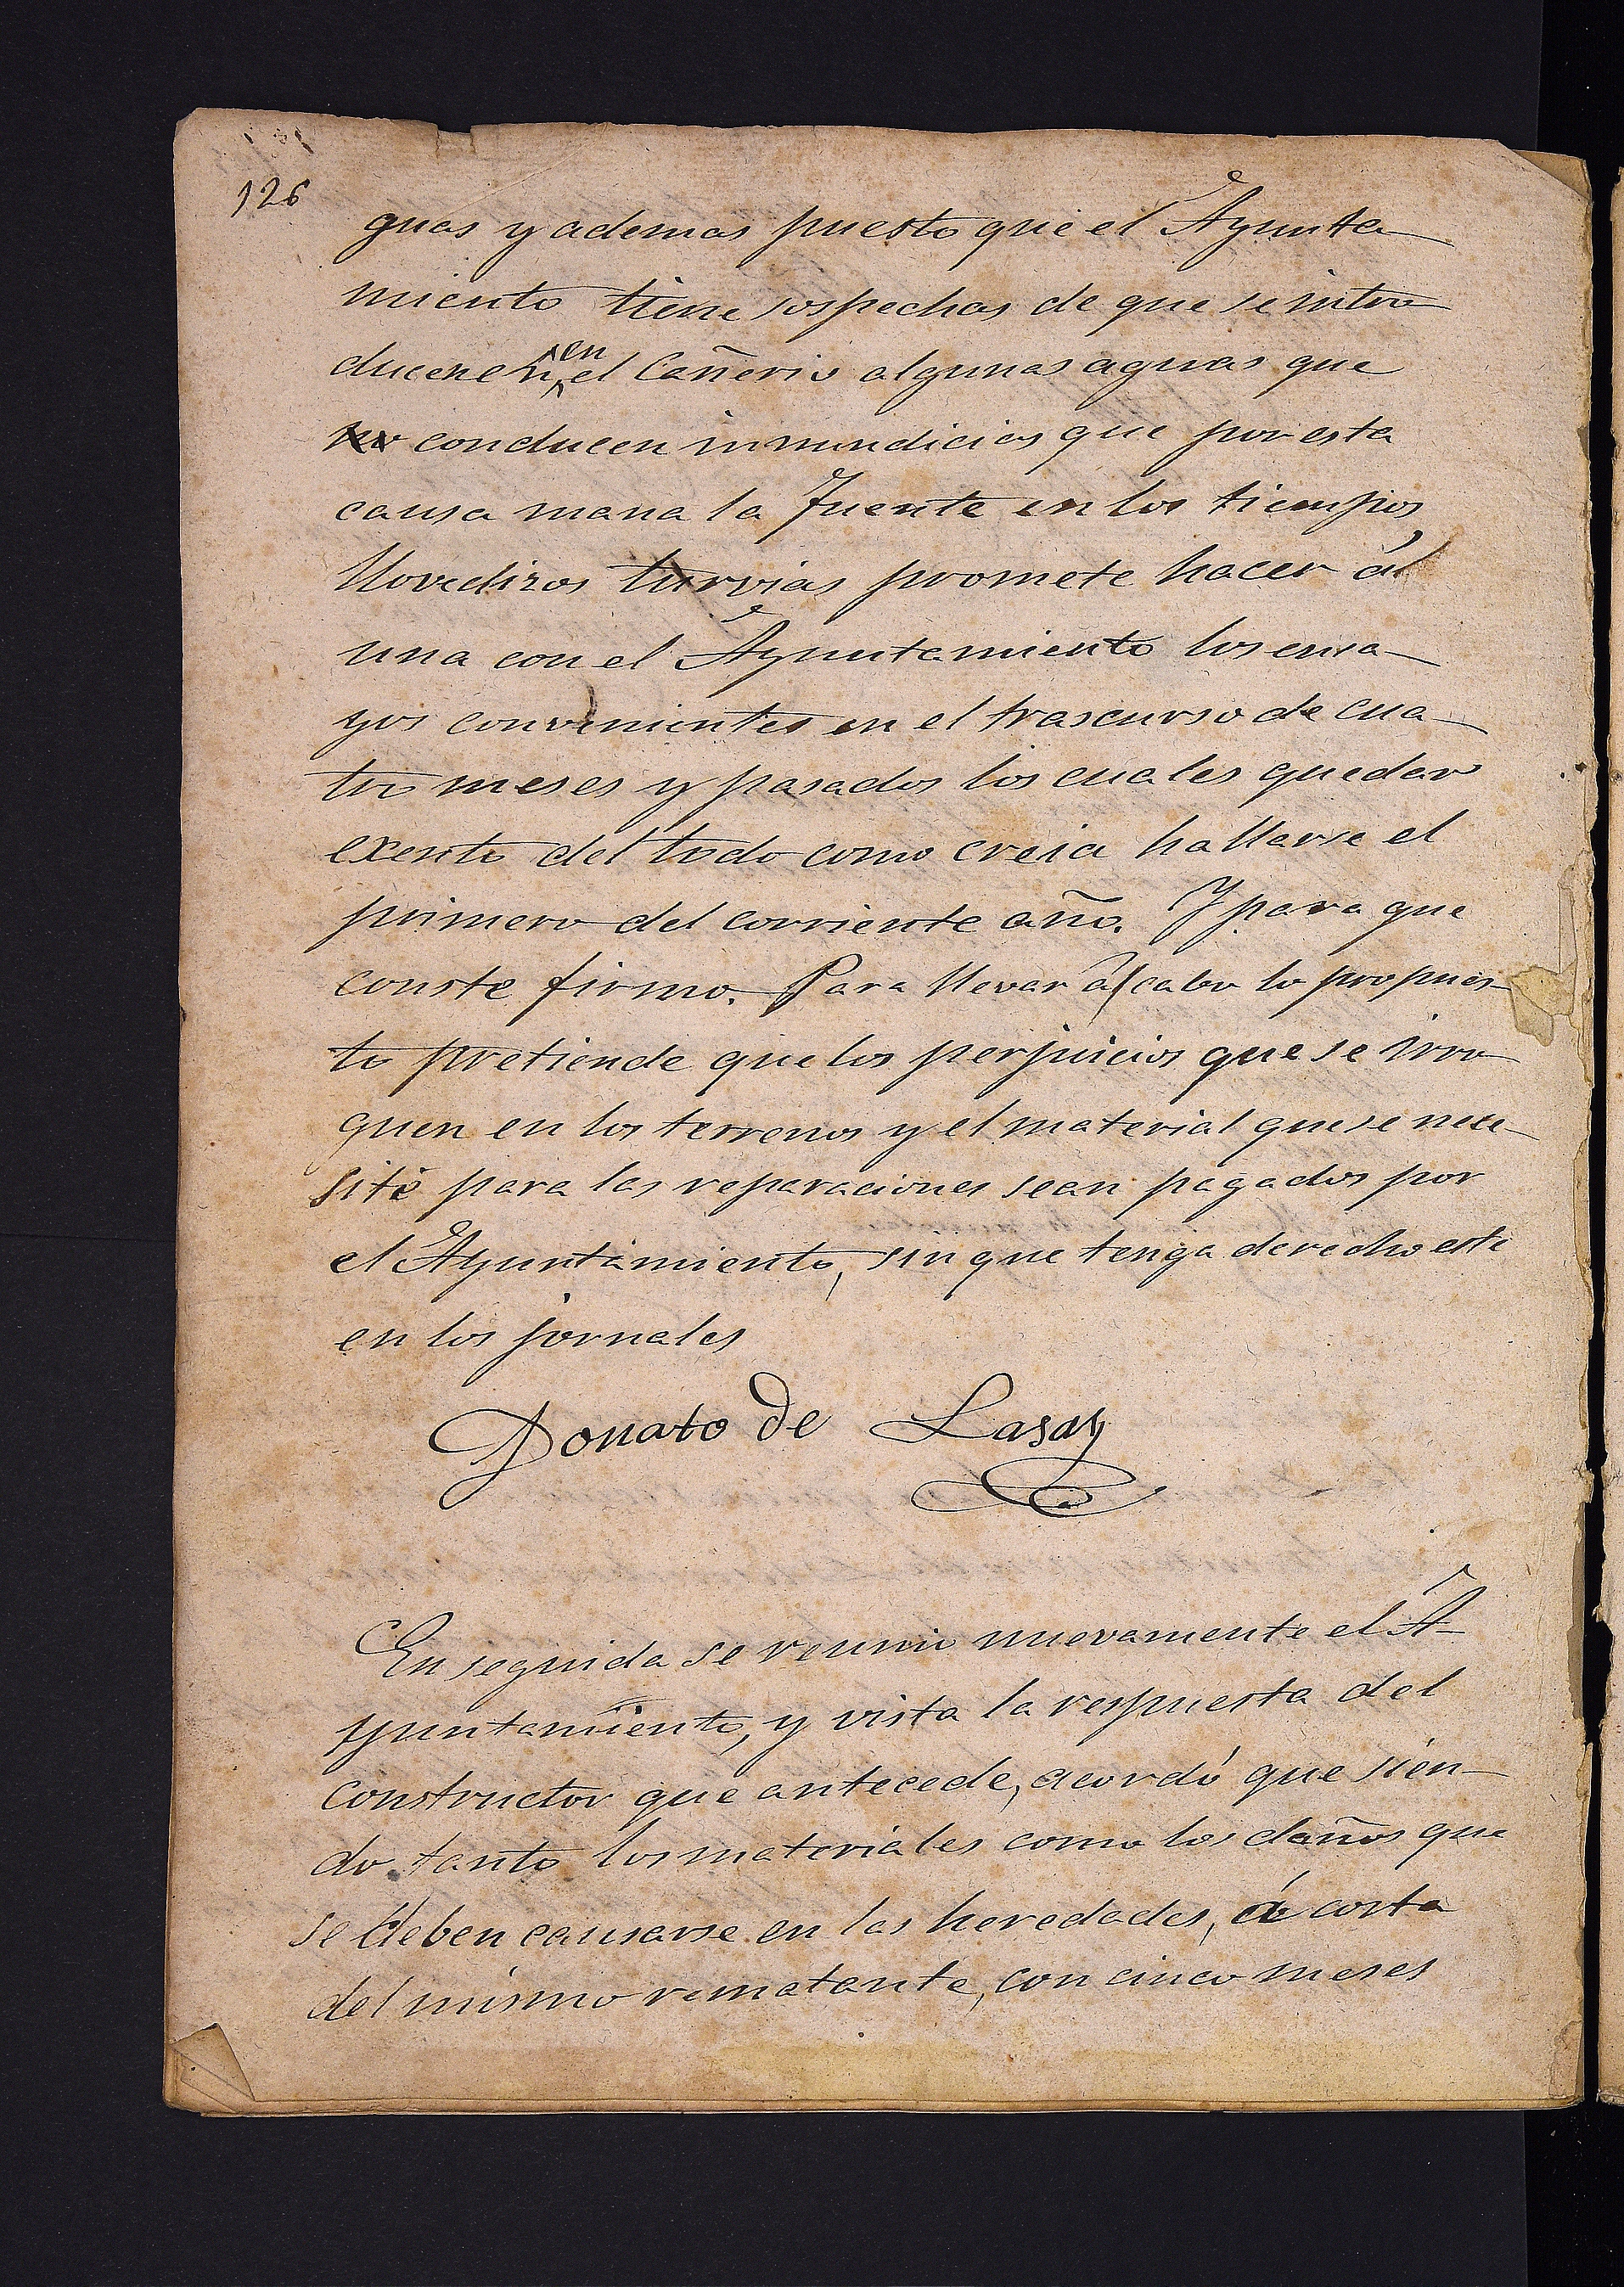 126
guas y ademas puesto que el Ayunta-
miento tiene sospechas de que se intro-
ducen en el Cañerio algunas aguas que
conducen inmundicias que por esta
causa mana la Fuente en los tiempos
llovedizos turvias promete hacer á
una con el Ayuntamiento los ensa-
yos convenientes en el trascurso de cua-
tro meses y pasados los cuales quedar
exento del todo como creia hallarse el
primero del corriente año. Y para que
conste firmo. Para llevar á cabo lo propues-
to pretiende que los perjuicios que se irro-
guen en los terrenos y el material que se nece-
site para las reparaciones sean pagados por
el Ayuntamiento, sin que tenga derecho este
en los jornales
Donato de Lasa
En seguida se reunio nuevamente el A-
yuntamiento, y vista la respuesta del
constructor que antecede, acordó que sien-
do tanto los materiales como los daños que
se deben causarse en las heredades, á costa
del mismo rematante, con cinco meses